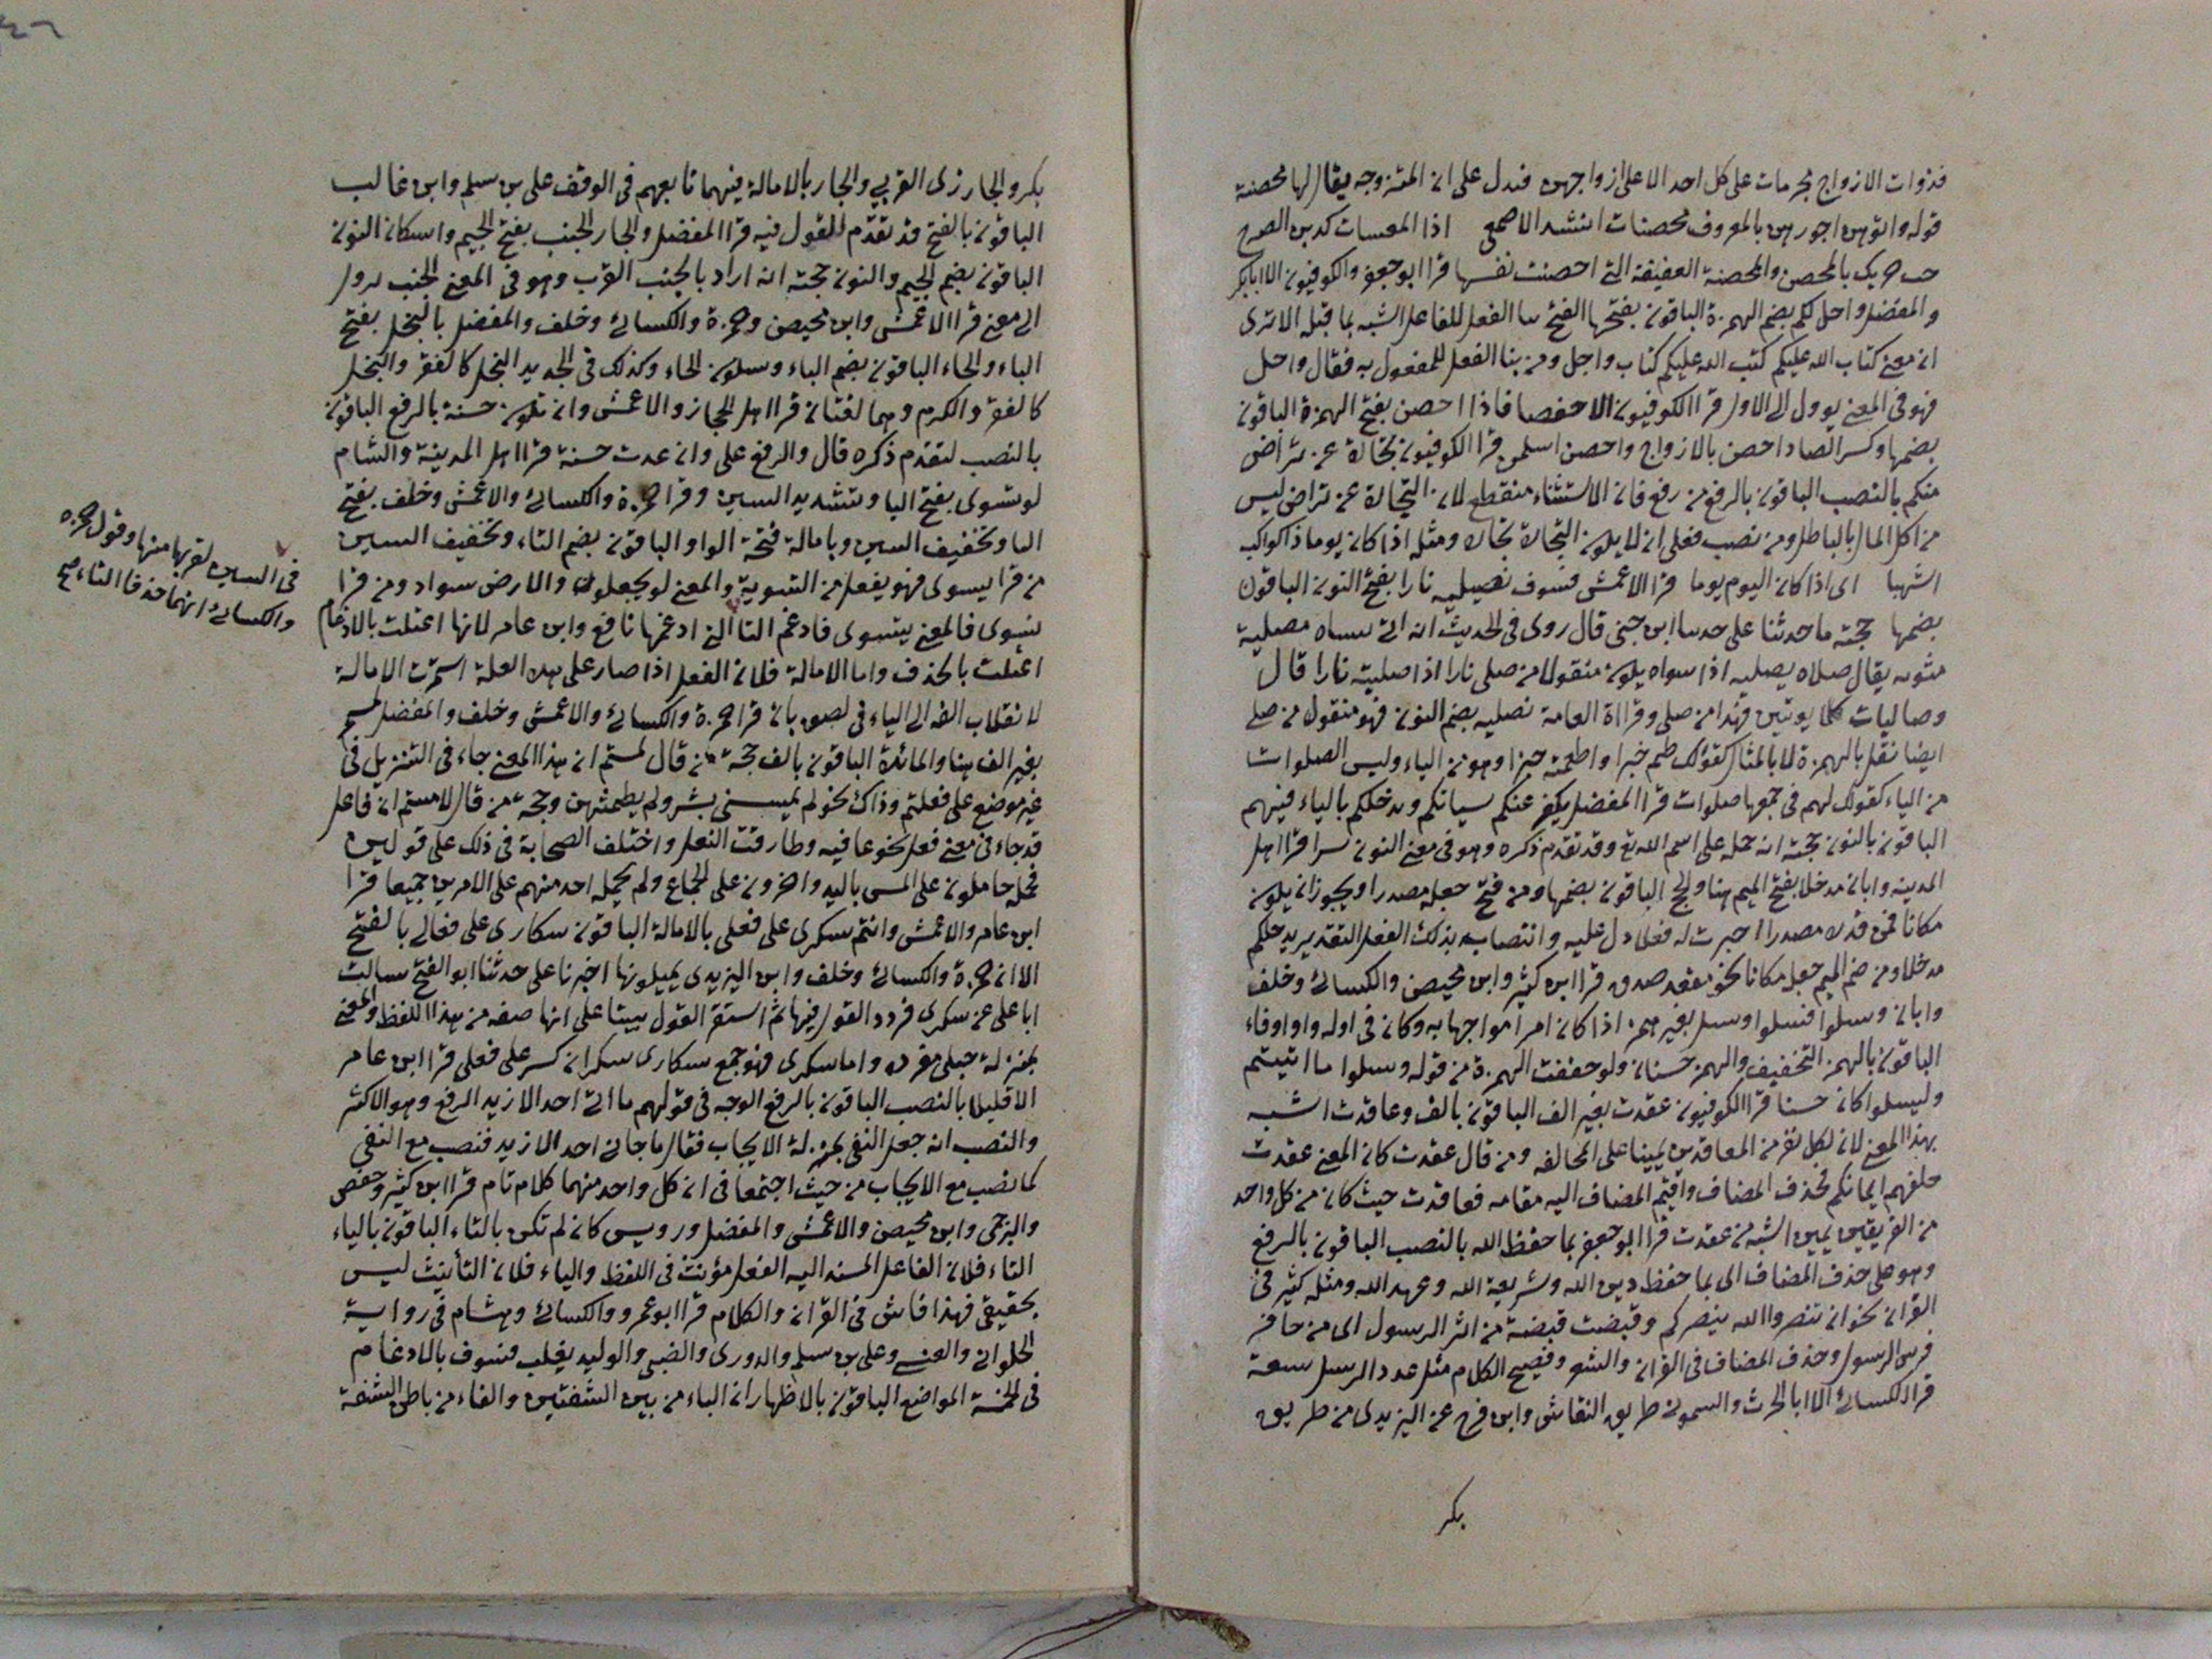 فذوات الازواج محرمات على كل احد الا على ازواجهن فدل على ان المتزوجه يقال لها محصنة
قوله واتوهن اجورهن بالمعروف محصنات انشد الاصمعي اذا المعسات كدبن الصبوح
بالمحصن والمحصنة العفيفة التي احصنت نفسها قرا ابو جعفر والكوفيون الا ابابكر
والمفضل واحل لكم بضم الهمزة الباقون بفتحها الفتح بنا الفعل للفاعل اشبه بما قبله الا ترى
ان معنى كتاب الله عليكم كتب الله عليكم كتاب واحل ومن بنا الفعل للمفعول به فقال واحل
فهو في المعنى يوول الى الاول قرا الكوفيون الا حفصا فاذا احصن بفتح الهمزة الباقون
بضمها وكسر الصاد احصن بالازواج واحصن اسلمن قرا الكوفيون تجارة عن تراض
منكم بالنصب الباقون بالرفع من رفع فان الاستثناء منقطع لان التجارة عن تراض ليس
من اكل المال بالباطل ومن نصب فعلى ان لا يكون التجارة تجارة ومثله اذا كان يوما ذا كواكب
اشهبا اى اذا كان اليوم يوما قرا الاعمش فسوف نصليه نارا بفتح النون الباقون
بضمها حجته ما حدثنا على حدثنا ابن جنى قال روى في الحديث انه اتى بشاه مصلية
مشويه يقال صلاه يصليه اذا سواه يكون منقولا من صلى نارا اذا صليته نارا قال
وصاليات ككما يوثين فهذا من صلى وقراة العامة نصليه بضم النون فهو منقول من صلى
ايضا نقل بالهمزة لا بالمثال كقولك طعم خبزا واطعمته خبزا وهو من الياء وليس الصلوات
من الياء كقولك لهم في جمعها صلوات قرا المفضل يكفر عنكم سياتكم ويدخلكم بالياء فيهم
الباقون بالنون حجته انه حمله على اسم الله تع وقد تقدم ذكره وهو في معنى النون سرا قرا اهل
المدينه وابان مدخلا بفتح الميم هنا والحج الباقون بضمها ومن فتح جعله مصدرا ويجوز ان يكون
مكانا فمن قدره مصدرا اخبرت له فعلا دل عليه وانتصابه بذلك الفعل التقدير يدخلكم
مدخلا ومن ضم الميم جعله مكانا نحو مقعد صدق قرا ابن كثير وابن محيصن والكسائى وخلف
وابان وسلوا فسلوا وسل بغير همز اذا كان امرا مواجها به وكان في اوله واو او فاء
الباقون بالهمز التخفيف والهمز حسنان ولو خففت الهمزة من قوله وسلوا ما انفقتم
وليسلوا كان حسنا قرا الكوفيون عقدت بغير الف الباقون بالف وعاقدت اشبه
بهذا المعنى لان لكل نفر من المعاقدين يمينا على المحالفه ومن قال عقدت كان المعنى عقدت
حلفهم ايمانكم فحذف المضاف واقيم المضاف اليه مقامه فعاقدت حيث كان من كل واحد
من الفريقين يمين اشبه من عقدت قرا ابو جعفر بما حفظ الله بالنصب الباقون بالرفع
وهو على حذف المضاف اى بما حفظ دين الله وشريعة الله وعهد الله ومثله كثير في
القران نحو ان تنصروا الله ينصركم وقبضت قبضة من اثر الرسول اى من حافر
فرس الرسول وحذف المضاف في القران والشعر وفصيح الكلام مثل عدد الرمل سعة
قرا الكسائى الا ابا الحرث والسمون طريق النقاش وابن فرح عن اليزيدى من طريق
بكر
بكر والجار ذى القربي والجار بالامالة فيهما تابعهم في الوقف على بن سلم وابن غالب
الباقون بالفتح قد تقدم القول فيه قرا المفضل والجار الجنب بفتح الجيم واسكان النون
الباقون بضم الجيم والنون حجته انه اراد بالجنب القرب وهو في المعنى الجنب
الى معنى قرا الاعمش وابن محيصن وحمزة والكسائى وخلف والمفضل بالبخل بفتح
الباء والخاء الباقون بضم الباء وسكون الخاء وكذلك في الحديد البخل كالفقر والبخل
كالفقر والكرم وهما لغتان قرا اهل الحجاز والاعمش وان تكون حسنة بالرفع الباقون
بالنصب لتقدم ذكره قال والرفع على وان حدثت حسنة قرا اهل المدينة والشام
لو تسوى بفتح التا وتشديد السين وقرا حمزة والكسائى والاعمش وخلف بفتح
التا وتخفيف السين وبامالة فتحة الواو الباقون بضم التاء وتخفيف السين
من قرا يسوى فهو يفعل من التسوية والمعنى لو يجعلون والارض سواء ومن قرا
تسوى فالمعنى يتسوى فادغم التا التى ادغمها نافع وابن عامر لانها اعتلت بالادغام
اعتلت بالحذف واما الامالة فلان الفعل اذا صار على هذه العلة استمرت الامالة
لانقلاب الفه الى الياء في قرا حمزة والكسائى والاعمش وخلف والمفضل لمستم
بغير الف هنا والمائدة الباقون بالف حجة من قال لمستم ان هذا المعنى جاء في التنزيل في
غير موضع على فعلتم وذاك نحو لم يمسسنى بشر ولم يطمثهن وحجة من قال لامستم ان فاعل
قد جاء في معنى فعل نحو عافيه وطارقت النعل واختلف الصحابة في ذلك على قولين
فحله حاملون على المس باليد واخرون على الجماع ولم يحمله احد منهم على الامرين جميعا قرا
ابن عامر والاعمش وانتم سكرى على فعلى بالامالة الباقون سكارى على فعالى بالفتح
الا ان حمزة والكسائى وخلف وابن اليزيدى يميلونها اخبرنا على حدثنا ابو الفتح سالت
ابا على عن سكرى فردد القول فيها ثم استقر القول بيننا على انها صفه من هذا اللفظ والمعنى
بمنزلة حبلى مفرده واما سكرى فهو جمع سكارى سكران كسر على فعلى قرا ابن عامر
الا قليلا بالنصب الباقون بالرفع الوجه في قولهم ما اتى احد الا زيد الرفع وهو الاكثر
والنصب انه جعل النفى بمنزلة الايجاب فقال ما جانى احد الا زيد فنصب مع النفى
كما نصب مع الايجاب من حيث اجتمعا في ان كل واحد منهما كلام تام قرا ابن كثير وحفص
والبرجمى وابن محيصن والاعمش والمفضل ورويس كان لم تكن بالتاء الباقون بالياء
التاء فلان الفاعل المسند اليه الفعل مؤنث في اللفظ والياء فلان التأنيث ليس
بحقيقى فهذا فاش في القران والكلام قرا ابو عمرو والكسائى وهشام في رواية
الحلوانى والعبسى وعلى بن سلم والدورى والضبى والوليد يغلب فسوف بالادغام
في الخمسة المواضع الباقون بالاظهار ان الباء من بين الشفتين والفاء من باطن الشفة
في السين لقربها منها وقول حمزه
والكسائى انهما حذفا التاء صح